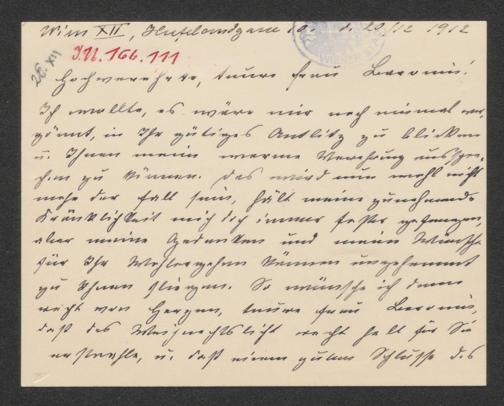 Wien XII, Hufelandgasse 10. d. 22/12 1912
I.N. 166.111
26. XII
Hochverehrte, teure Frau Baronin!
Ich wollte, es wäre mir noch einmal ver-
gönnt, in Ihr gütiges Antlitz zu blicken
u. Ihnen meine warme Verehrung ausspre-
chen zu können. Das wird nun wohl nicht
mehr der Fall sein, hält meine zunehmende
Kränklichkeit mich doch immer fester gefangen,
aber meine Gedanken und meine Wünsche
für Ihr Wohlergehen können ungehemmt
zu Ihnen fliegen. So wünsche ich denn
recht von Herzen, teure Frau Baronin,
daß das Weihnachtslicht recht hell für Sie
erstrahle, u. daß einem guten Schlusse des